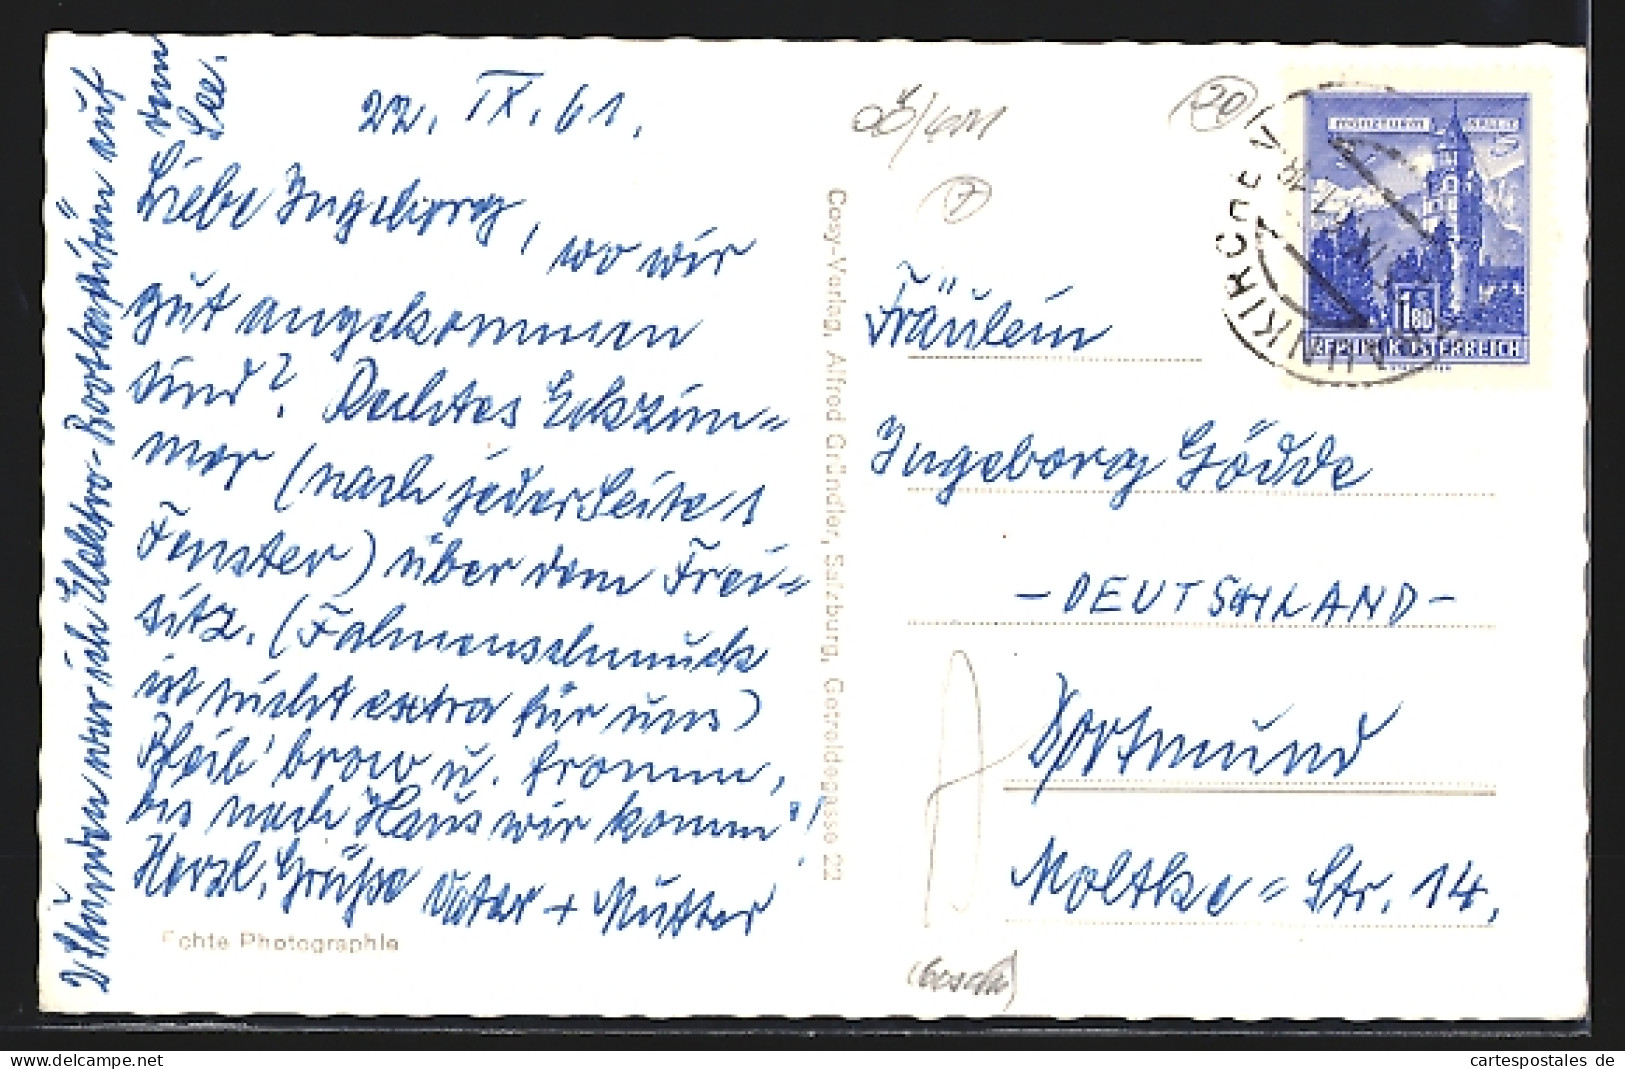 22. IX. 61.
Liebe Ingeborg, wo wir
gut angekommen
sind? Rechtes Eckzim=
mer (nach jeder Seite 1
Fenster) über dem Frei=
sitz. (Fahnenschmuck
ist nicht extra für uns)
Bleib' brav u. fromm,
bis nach Haus wir komm'!
Herzl. Grüße Vater + Mutter
2 Stunden war ich Elektro-Bootskapitän auf
dem
See.
Echte Photographie
Cosy-Verlag, Alfred Gründler, Salzburg, Getreidegasse 22
20
7
MÜNZTURM HALL
S 1.80
REPUBLIK ÖSTERREICH
Fräulein
Ingeborg Gödde
- DEUTSCHLAND -
Dortmund
Moltke=Str. 14.
cartespostales de